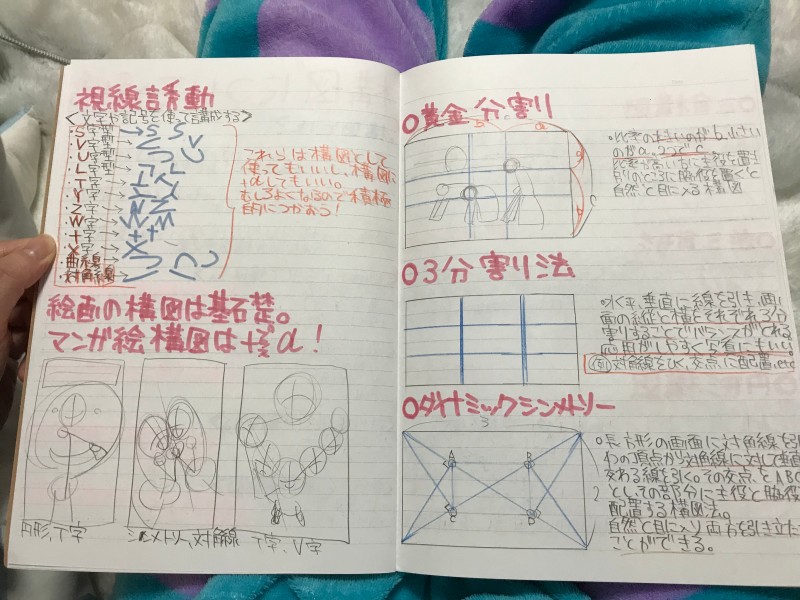 視線誘導
<文字や記号を使って構成する>
・S字型→S S
・V字型→V
・U字型→
・L字型→
・T字→
・Y字→
・Z字→
・W字→
・十字→
・X字→
・曲線→
・対角線→
これらは構図として
使ってもいいし、構図に
+αしてもいい。
むしろよくなるので積極
的につかおう!
絵画の構図は基礎。
マンガ絵構図は+α!
円形、T字
シンメトリー、対角線
T字、V字
○黄金分割り
b a
a
b
c
・比率の大きいのがb、小さい
のがa、2つでc
比率が大きい方に主役を置き
自然と目に入る構図
○3分割り法
・水平、垂直に線を引き、画
面の縦と横をそれぞれ3分
割りすることでバランスがとれる
応用がしやすく写真にもいい。
(例)対角線をひく、交点に配置、etc
○ダイナミックシンメトリー
3
2
A
B
○長方形の画面に対角線を引
わの頂点から対角線に対して垂直
交わる線を引く。その交点をABC
としその部分に主役と脇役
配置する構図法。
自然と目に入り両方を引き立た
ことができる。